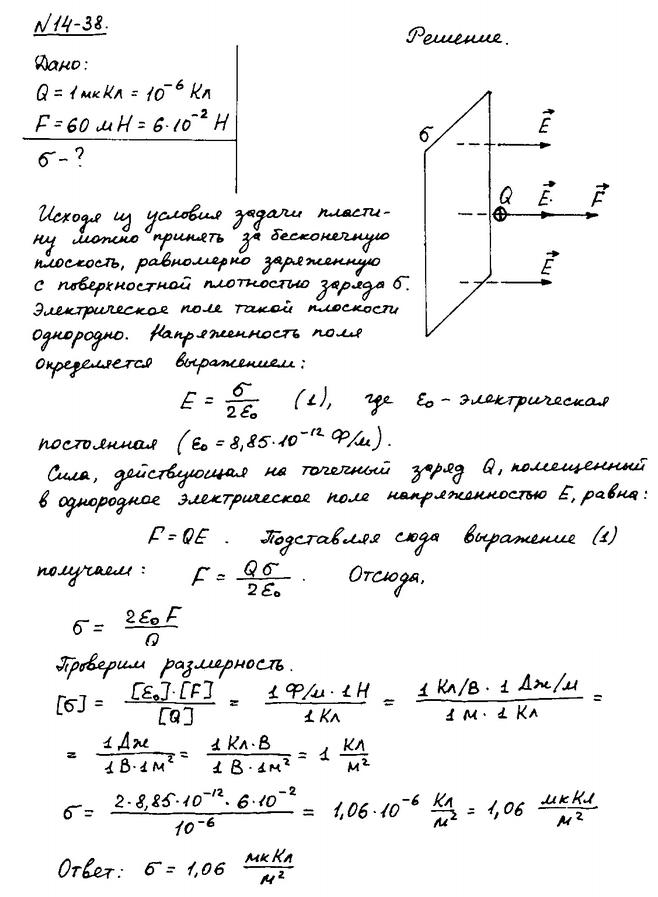 N14-38.
Решение.
Дано:
Q = 1 мкКл = 10⁻⁶ Кл
F = 60 мН = 6·10⁻² Н
σ - ?
σ
E⃗
Q E⃗ F⃗
E⃗
Исходя из условия задачи пласти-
ну можно принять за бесконечную
плоскость, равномерно заряженную
с поверхностной плотностью заряда σ.
Электрическое поле такой плоскости
однородно. Напряженность поля
определяется выражением:
E = σ/2ε₀ (1), где ε₀ - электрическая
постоянная (ε₀ = 8,85·10⁻¹² Ф/м).
Сила, действующая на точечный заряд Q, помещенный
в однородное электрическое поле напряженностью E, равна:
F = QE. Подставляя сюда выражение (1)
получаем: F = Qσ/2ε₀. Отсюда,
σ = 2ε₀F/Q
Проверим размерность.
[σ] = [ε₀]·[F]/[Q] = 1 Ф/м · 1 Н/1 Кл = 1 Кл/В · 1 Дж/м/1 м · 1 Кл =
= 1 Дж/1 В · 1 м² = 1 Кл·В/1 В · 1 м² = 1 Кл/м²
σ = 2·8,85·10⁻¹²·6·10⁻²/10⁻⁶ = 1,06·10⁻⁶ Кл/м² = 1,06 мкКл/м²
Ответ: σ = 1,06 мкКл/м²